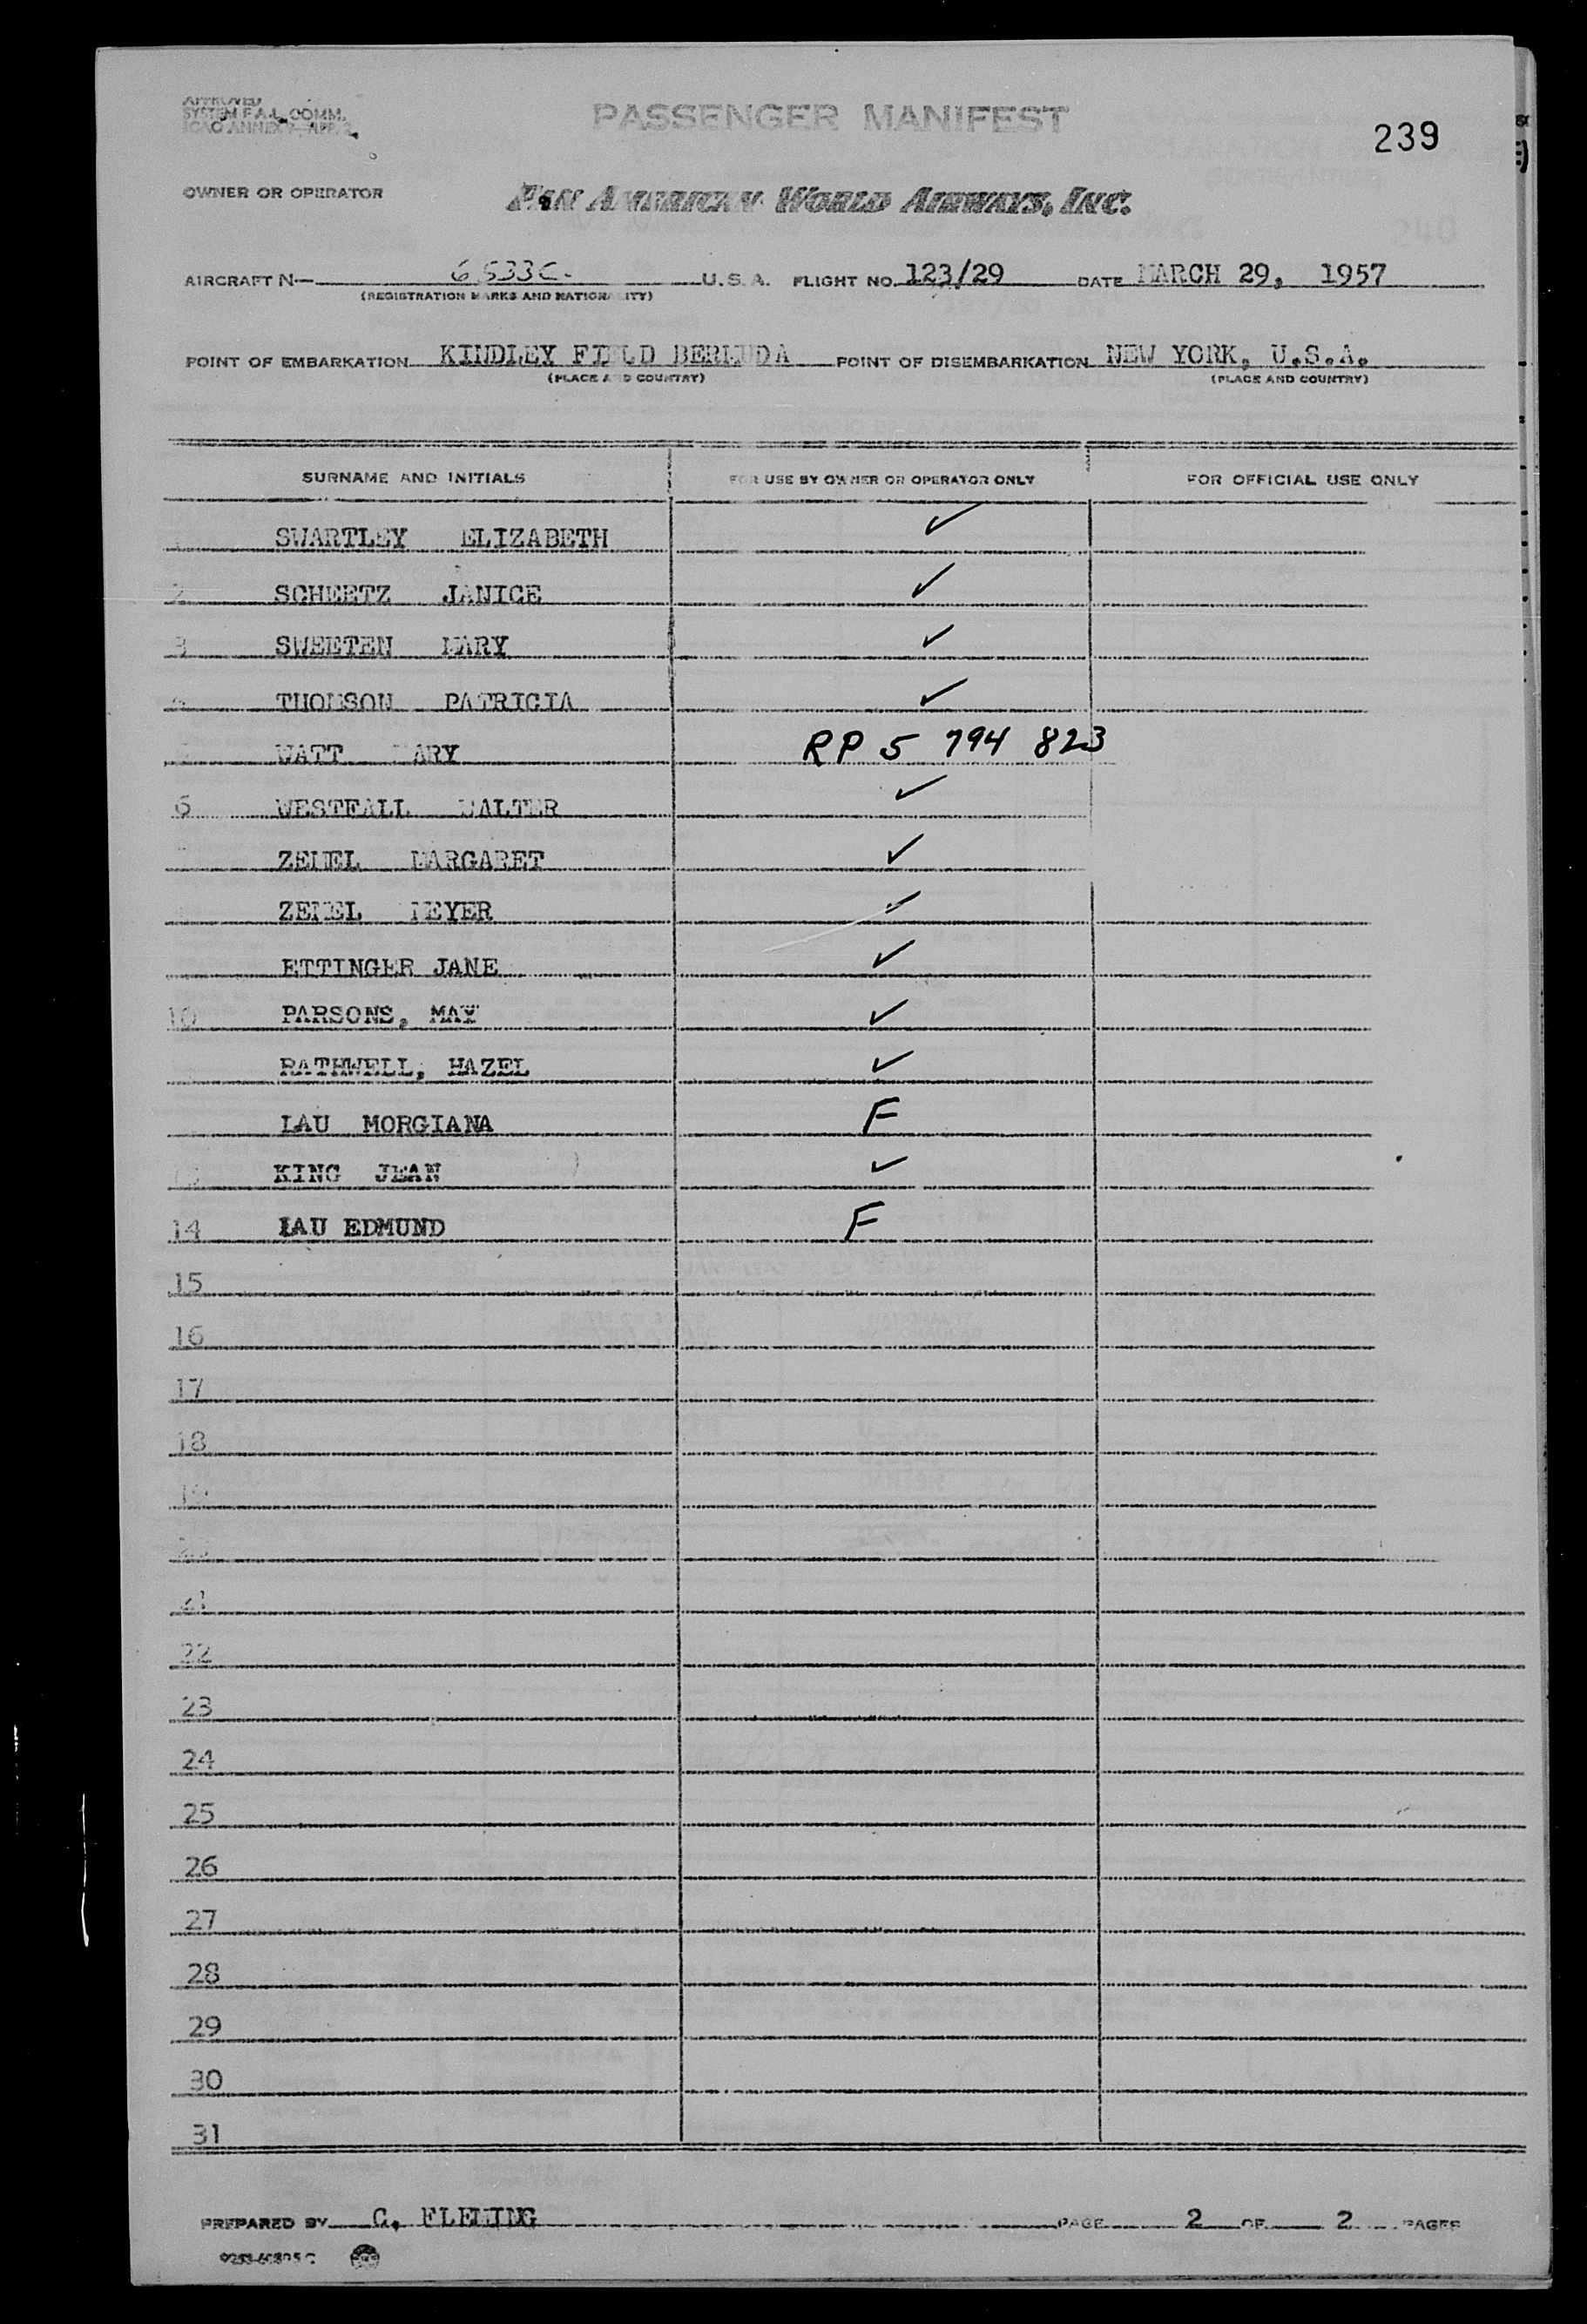 APPROVED
SYSTEM F.A.L. COMM.
ICAO ANNEX 9-APP. 2
PASSENGER MANIFEST
239
OWNER OR OPERATOR PAN AMERICAN WORLD AIRWAYS, INC.
AIRCRAFT N— 6533C. U.S.A. FLIGHT NO. 123/29 DATE MARCH 29, 1957
(REGISTRATION MARKS AND NATIONALITY)
POINT OF EMBARKATION KINDLEY FIELD BERMUDA POINT OF DISEMBARKATION NEW YORK, U.S.A.
(PLACE AND COUNTRY) (PLACE AND COUNTRY)
SURNAME AND INITIALS FOR USE BY OWNER OR OPERATOR ONLY FOR OFFICIAL USE ONLY
SWARTLEY ELIZABETH ✓
2 SCHERTZ JANICE ✓
3 SWEETEN MARY ✓
4 THOMSON PATRICIA ✓
WATT MARY RP 5 794 823
6 WESTFALL WALTER ✓
ZEMEL MARGARET ✓
ZEMEL MEYER ✓
ETTINGER JANE ✓
10 PARSONS, MAY ✓
RATHWELL, HAZEL ✓
LAU MORGIANA F
13 KING JEAN ✓
14 LAU EDMUND F
15
16
17
18
19
20
21
22
23
24
25
26
27
28
29
30
31
PREPARED BY C. FLEMING PAGE 2 OF 2 PAGES